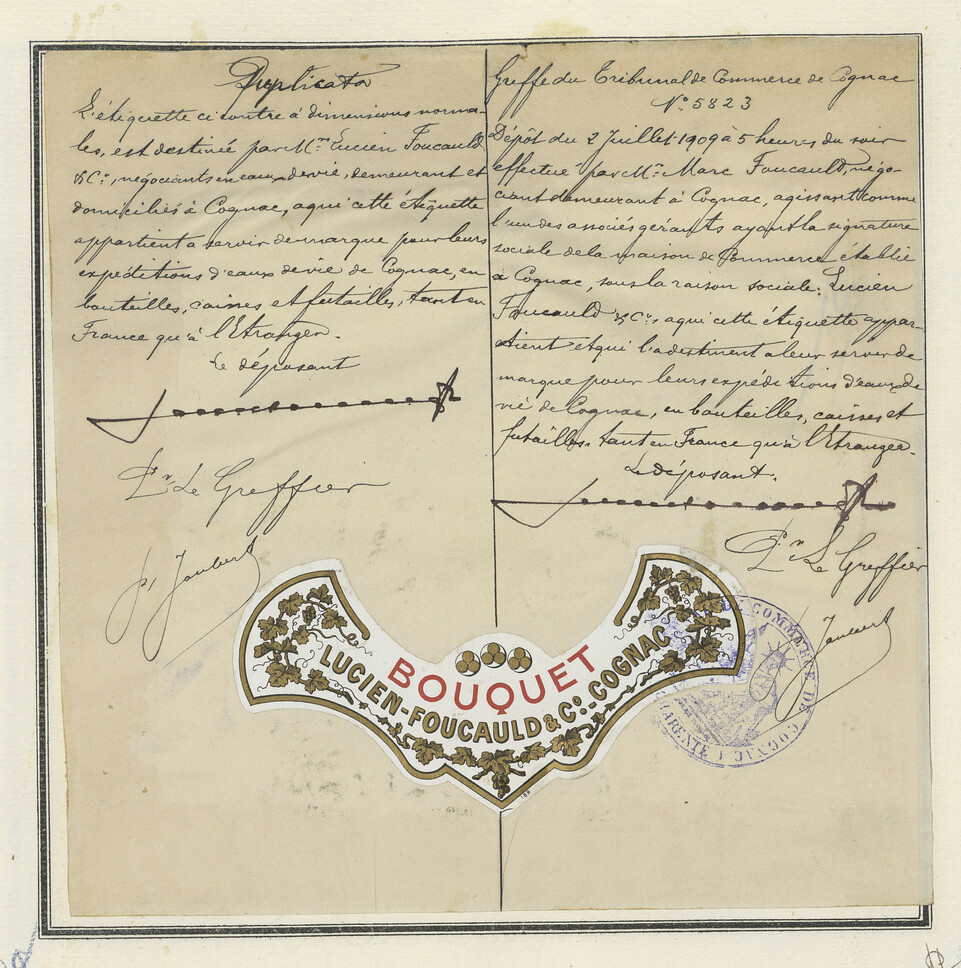 Duplicata
L'étiquette ci contre à dimensions norma-
les, est destinée par Mr. Lucien Foucauld
& Co, négociants en eaux de vie, demeurant et
domiciliés à Cognac, a qui cette étiquette
appartient a servir de marque pour leurs
expéditions d'eaux de vie de Cognac, en
bouteilles, caisses et futailles, tant en
France qu'à l'Etranger.
Le déposant
Pr. Le Greffier
p, Joubert
Greffe du Tribunal de Commerce de Cognac
No. 5823
Dépôt du 2 Juillet 1909 à 5 heures du soir
effectué par Mr. Marc Foucauld, négo-
ciant demeurant à Cognac, agissant comme
l'un des associés gérants ayant la signature
sociale de la maison de Commerce établie
à Cognac, sous la raison sociale: Lucien
Foucauld & Co, a qui cette étiquette appar-
tient et qui l'a destinent a leur servir de
marque pour leurs expéditions d'eaux de
vie de Cognac, en bouteilles, caisses et
futailles, tant en France qu'à l'Etranger.
Le déposant.
Pr. Le Greffier
Joubert
BOUQUET
LUCIEN-FOUCAULD & Co.-COGNAC
DE COMMERCE DE COGNAC
CHARENTE